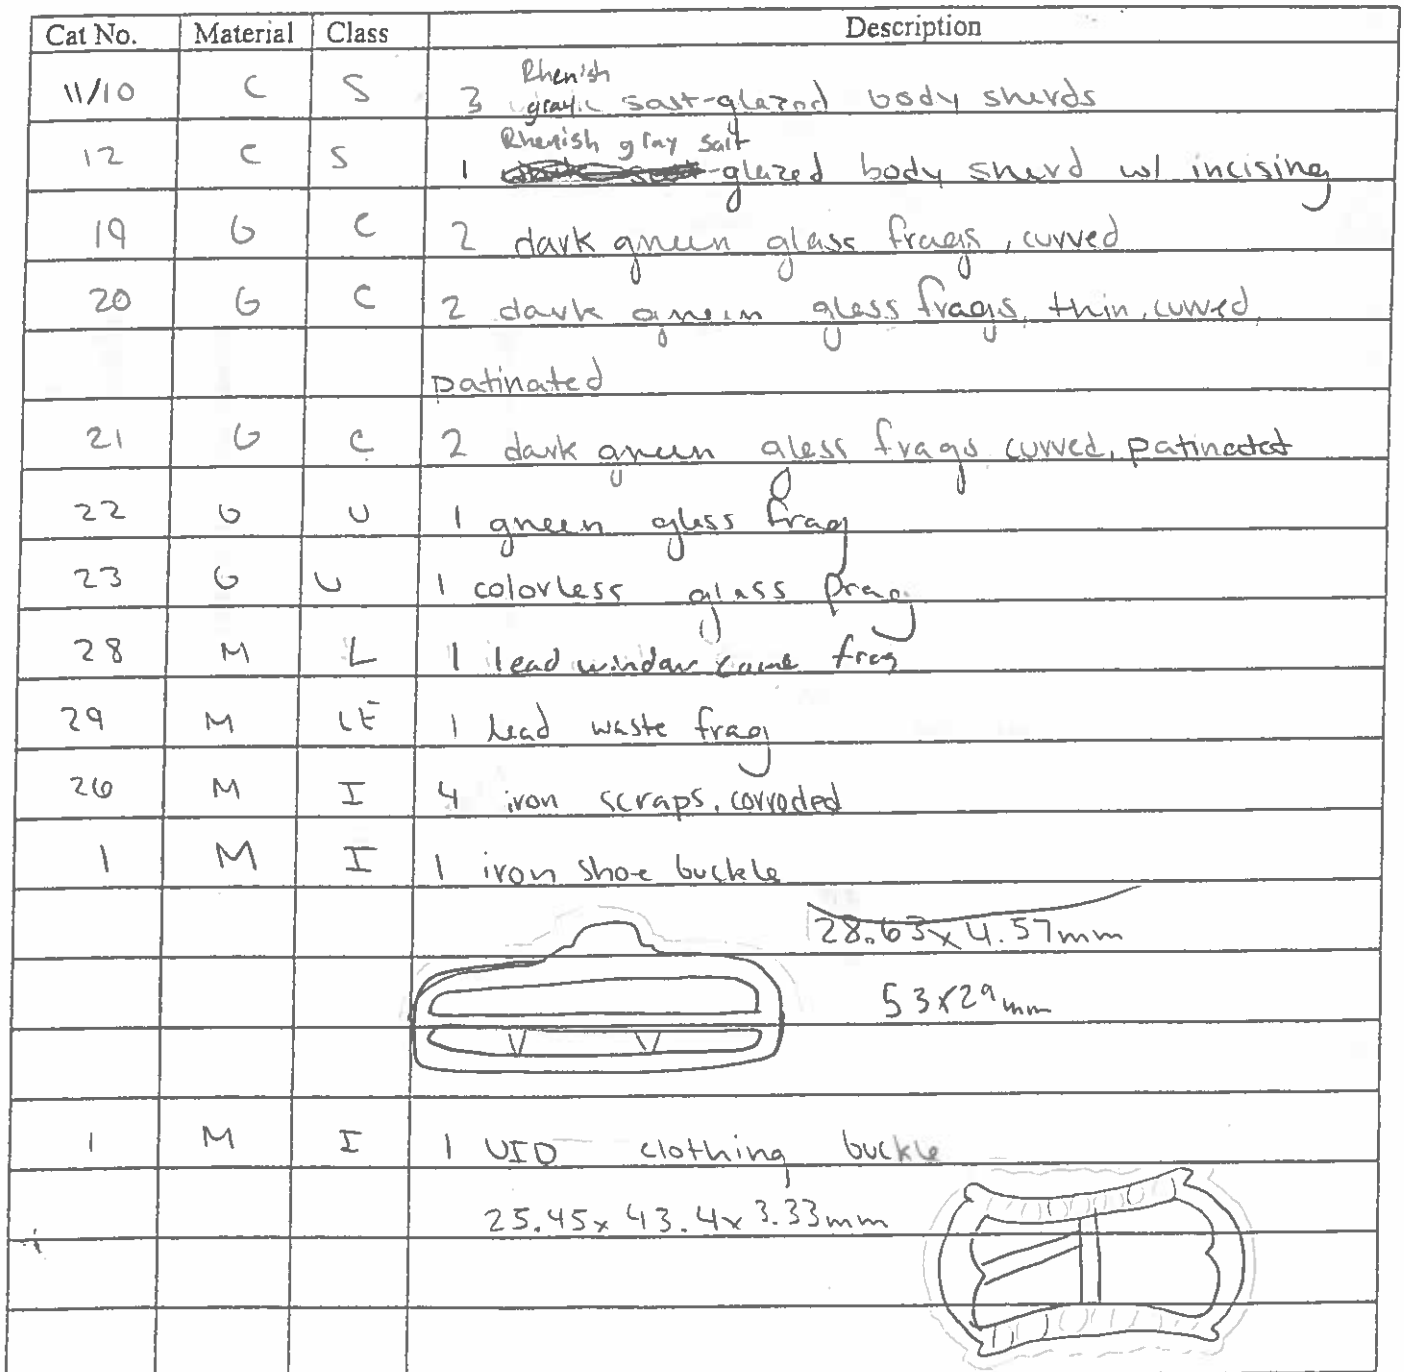 Cat No. Material Class Description
Rhenish
11/10 C S 3 gray salt-glazed body sherds
Rhenish gray salt
12 C S 1 -glazed body sherd w/ incising
19 G C 2 dark green glass frags, curved
20 G C 2 dark green glass frags, thin, curved,
patinated
21 G C 2 dark green glass frags curved, patinated
22 G U 1 green glass frag
23 G U 1 colorless glass frag
28 M L 1 lead window came frag
29 M LE 1 lead waste frag
26 M I 4 iron scraps, corroded
1 M I 1 iron shoe buckle
28.63 x 4.57mm
53x29mm
1 M I 1 UID clothing buckle
25.45 x 43.4 x 3.33mm